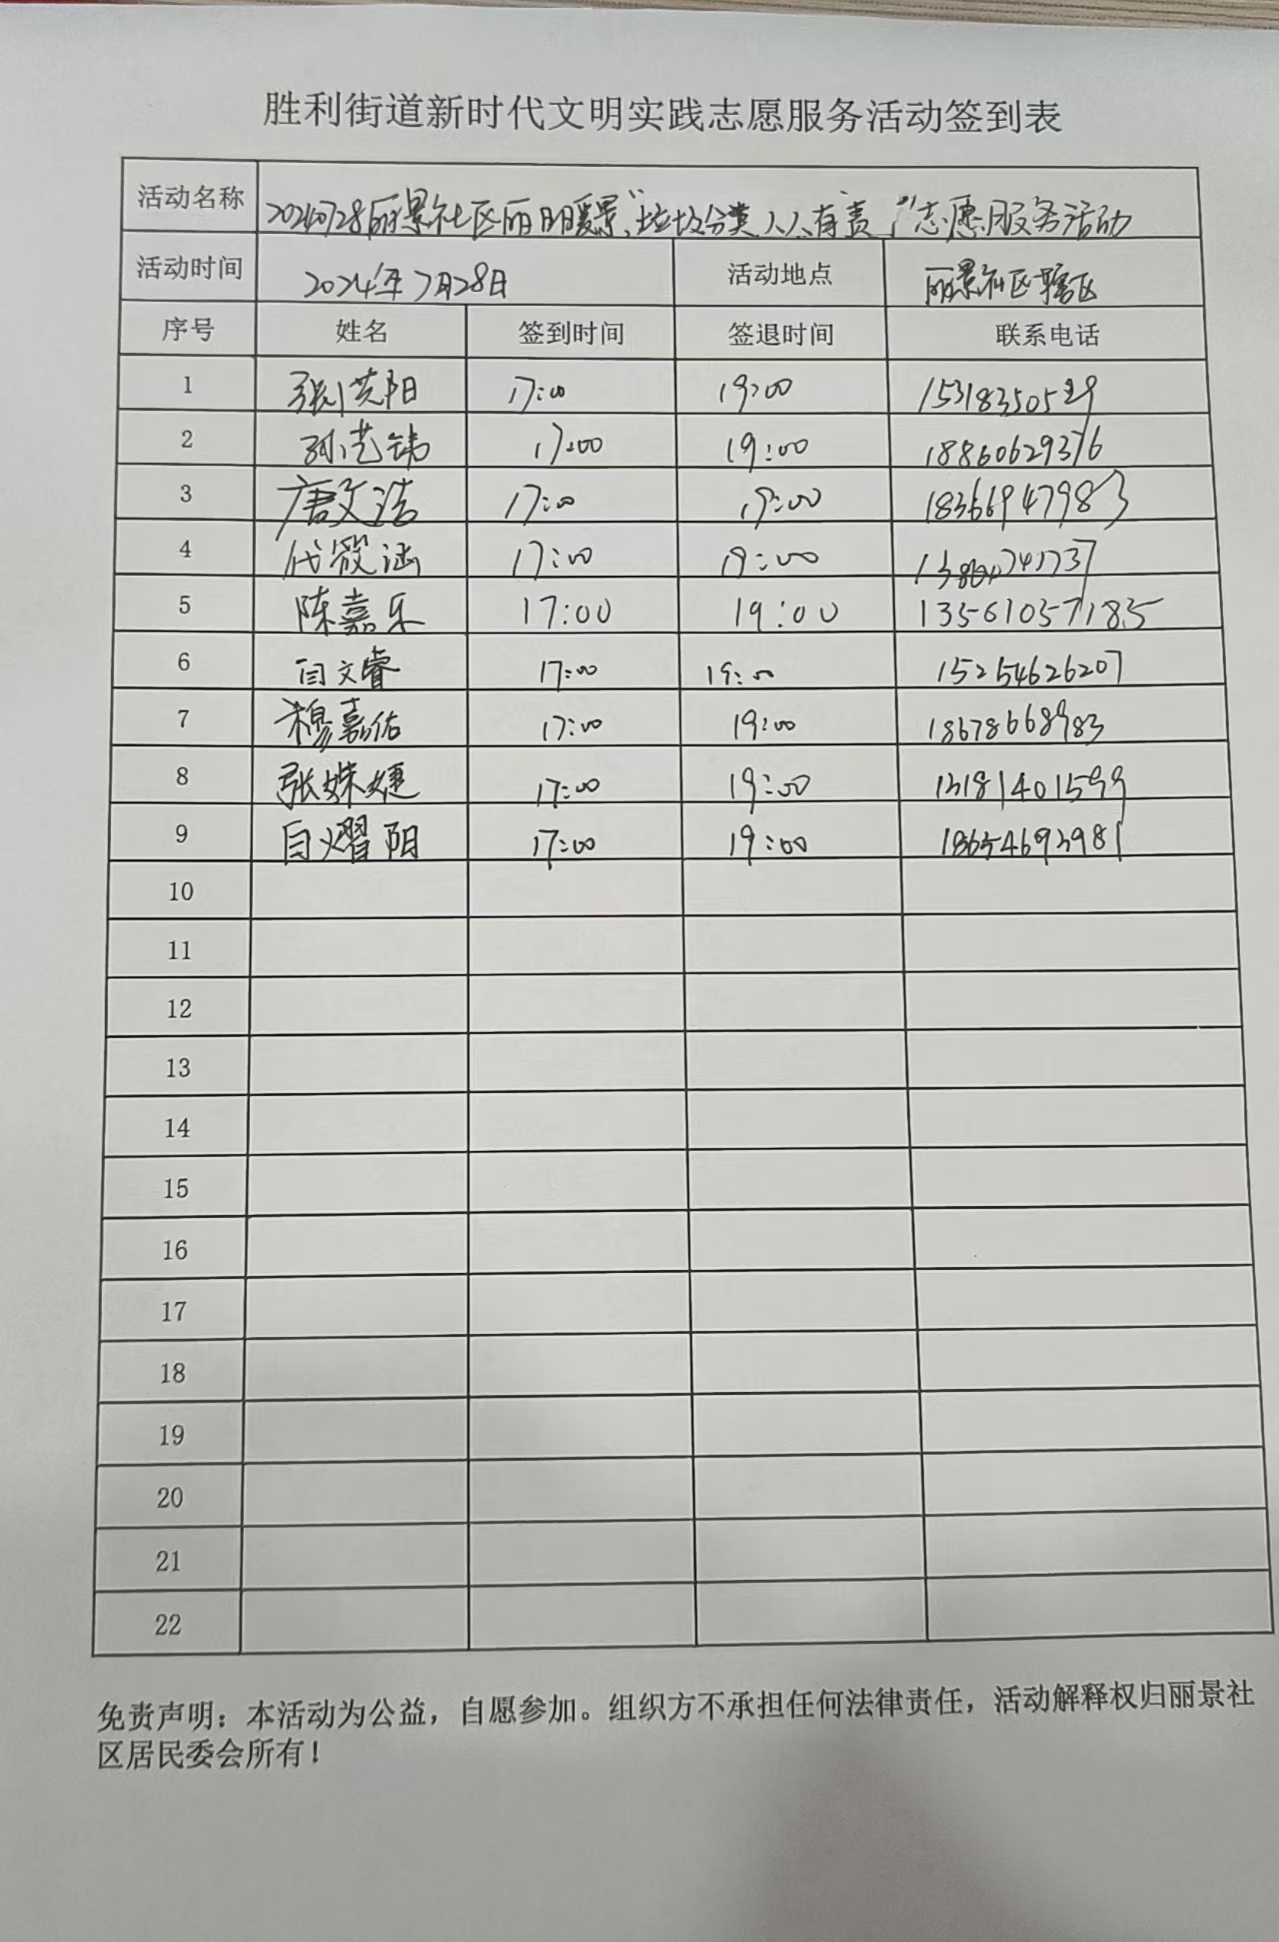 胜利街道新时代文明实践志愿服务活动签到表
活动名称 20240728丽景社区丽明暖景"垃圾分类人人有责"志愿服务活动
活动时间 2024年7月28日 活动地点 丽景社区辖区
序号 姓名 签到时间 签退时间 联系电话
1 17:00 19:00
2 孙艺铭 17:00 19:00 18860629376
3 唐文浩 17:00 19:00 18366947983
4 17:00 19:00
5 陈嘉乐 17:00 19:00 13561057185
6 闫文睿 17:00 19:00 15254626207
7 穆嘉佑 17:00 19:00 18678668983
8 张姝婕 17:00 19:00 13181401599
9 17:00 19:00 18654693981
10
11
12
13
14
15
16
17
18
19
20
21
22
免责声明：本活动为公益，自愿参加。组织方不承担任何法律责任，活动解释权归丽景社
区居民委会所有！